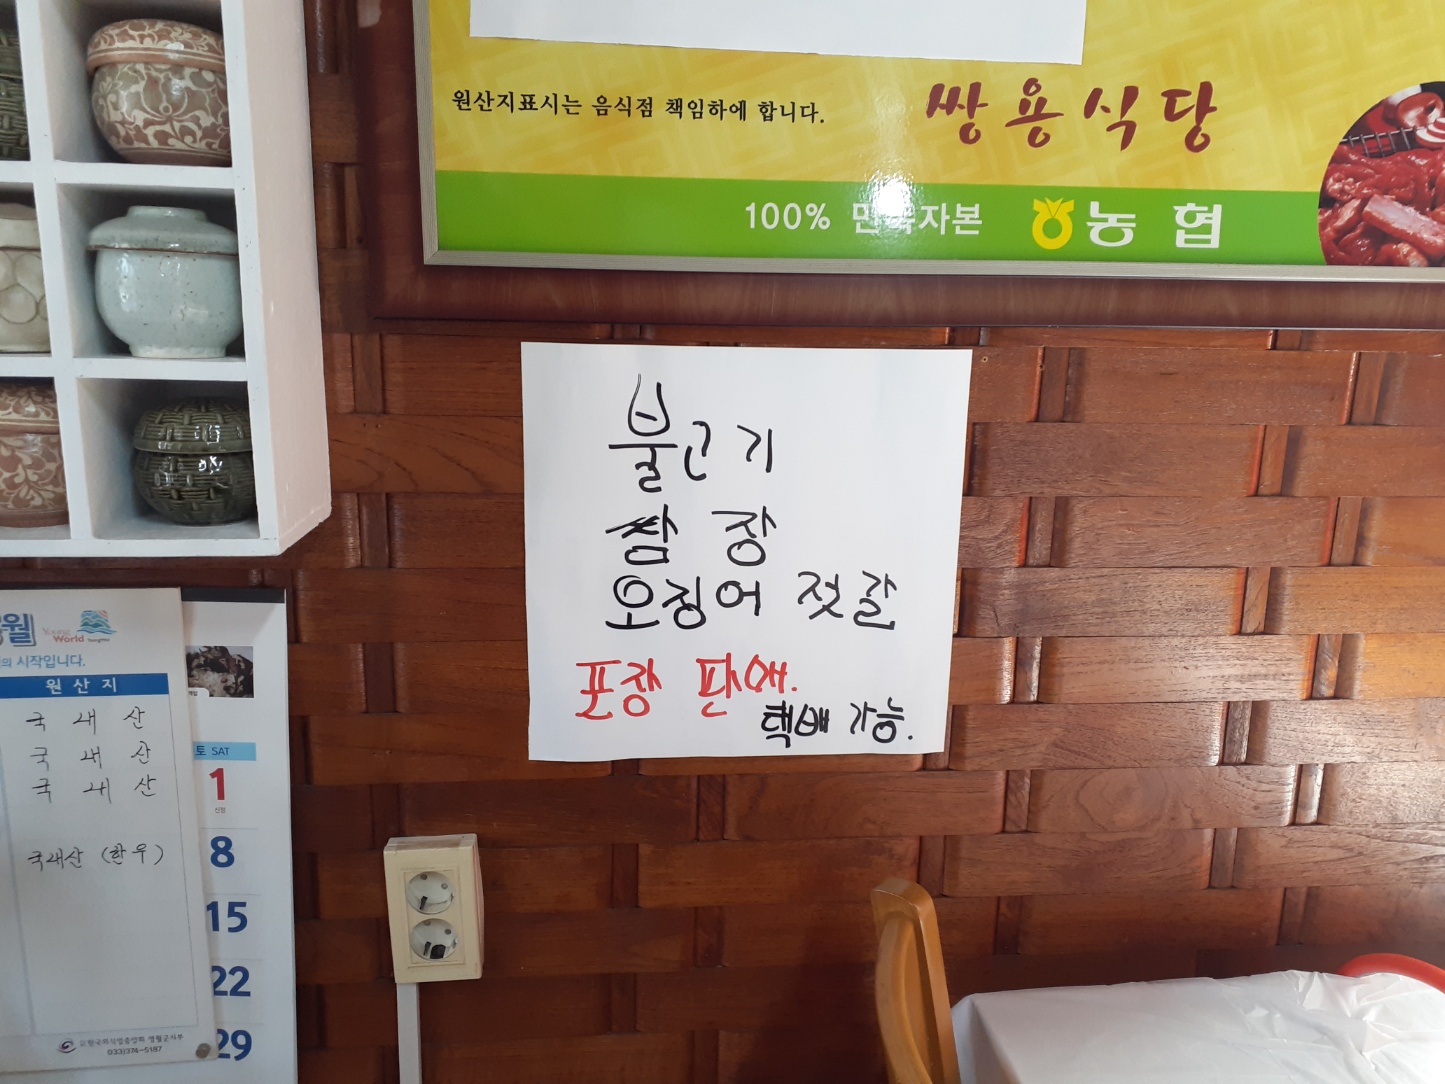 원산지표시는 음식점 책임하에 합니다.
쌍용식당
100% 민족자본 농협
불고기
쌈장
오징어 젓갈
포장 판매.
택배 가능.
월
World
의 시작입니다.
원산지
국내산
국내산
국내산
국내산 (한우)
한국외식업중앙회 영월군지부
033)374-5187
토 SAT
1
신정
8
15
22
29